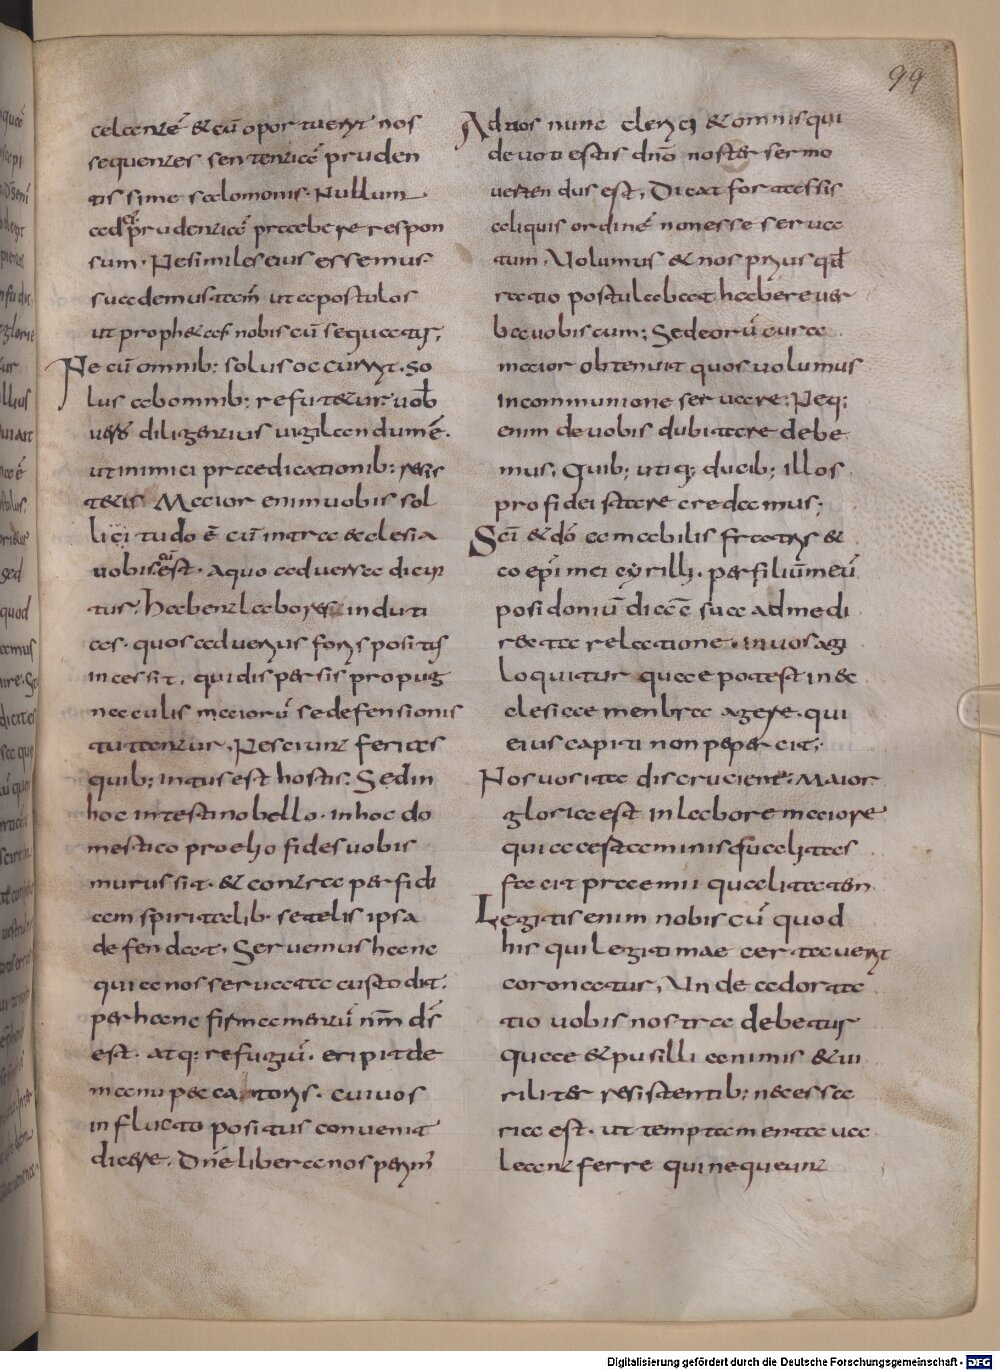 99
calcanté & cū oportuerit nos
sequentes sententiā pruden
tissime salomonis. Nullum
ad eā prudentiā praebere respon
sum. Ne similes eius essemus.
suademus tam̄ ut apostolos
ut proph&as nobiscū sequatis;
Ne cū omnib; solus occurrit. so
lus ab omnib; refutetur uob̄
uer̄ diligentius uigilandum ē.
ut inimici praedicationib; resis
tatis. Maior enim uobis sol
licitudo ē cū intra ecclesia
uobiscū est. a quo aduersa dicun
tur; Habent labores induti
as. quos aduentus foris positis
incessit. qui dispersis propug
naculis maiorū se defensionis
tutantur. Nesciunt ferias
quib; intus est hostis. Sed in
hoc intestino bello. in hoc do
mestico proelio fides uobis
murus sit. & contra perfidi
am spiritalib. se telis ipsa
defendat. Seruemus hanc
qui a nos seruata custodit.
per hanc firmamentū nr̄m dś
est. atq; refugiū. eripit de
manu peccatoris. cui uos
in fluctu positus conuenit
dicere. Dn̄e libera nos perim̄
Ad uos nunc clerici & omnis qui
deuoti estis dn̄o noster sermo
uertendus est. Dicat fortassis
aliquis ordinē non esse serua
tum. Uolumus & nos prius qd̄
ratio postulabat habere uer
ba uobiscum; Sed eorū cura
maior obtenuit quos uolumus
in communione seruare; Neq;
enim de uobis dubitare debe
mus. Quib; utiq; ducib; illos
pro fide stare credamus;
Sc̄i & dō amabilis fratris &
coep̄i mei cyrilli. per filiū meū
posidoniū diac̄ sua ad me di
recta relatione. in uos agi
loquitur quae potest in ec
clesiae menbra agere. qui
eius capiti non pepercit;
Nos uos ita discrucient; maior
gloria est in labore maiore
qui a estaminis qualitas
facit praemii qualitatem
Legitis enim nobiscū quod
his qui legitimae certauerit
coronatur. Unde adorta
tio uobis nostra debetur
quae & pusilli animis & ui
riliter resistentib; necessa
ria est. ut temptamenta ua
leant ferre qui nequeunt
Digitalisierung gefördert durch die Deutsche Forschungsgemeinschaft - DFG